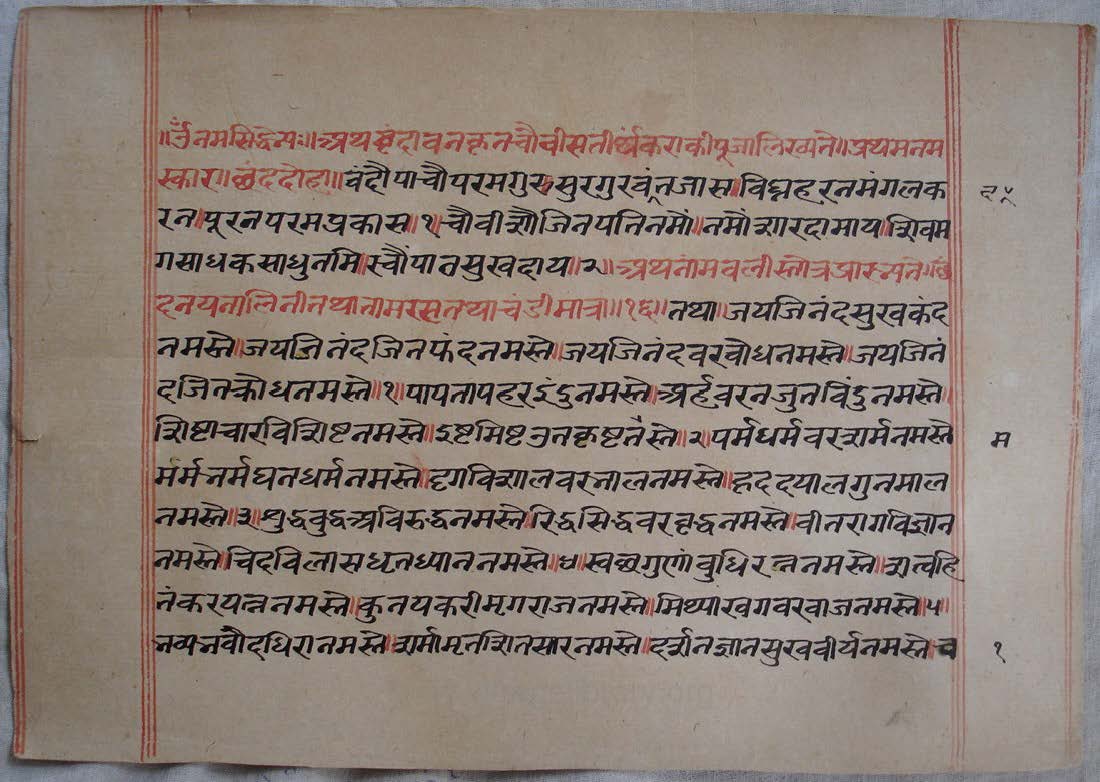 ॥ॐनमसिद्धेभ्यः॥अथवृंदावनकृतचौवीसतीर्थंकराकीपूजालिख्यते॥प्रथमनम
स्कार॥छंददोहा॥वंदौपाचौपरमगुरुसुरगुरवंतजास॥विघ्नहरनमंगलक
रन॥पूरनपरमप्रकास॥१॥चौवीशौजिनपतिनमों॥नमौंशारदामाय॥शिवम
गसाधकसाधुनमि॥रचौंपाठसुखदाय॥२॥अथनांमवलीस्तोत्रप्रारभ्यते॥छं
दनयनालिनीतथातामरसतथाचंडीमात्रा॥१६॥तथा॥जयजिनंदसुखकंद
नमस्ते॥जयजिनंदजितफंदनमस्ते॥जयजिनंदवरवोधनमस्ते॥जयजिनं
दजितक्रोधनमस्ते॥१॥पापतापहरइंदुनमस्ते॥अर्हवरनजुतविंदुनमस्ते॥
शिष्टाचारविशिष्टनमस्ते॥इष्टमिष्टउतकृष्टनस्ते॥२॥पर्मधर्मवरशर्मनमस्ते म
मर्मभर्मघनधर्मनमस्ते॥दृगविशालवरभालनमस्ते॥हृददयालगुनमाल
नमस्ते॥३॥शुद्धवुद्धअविरुद्धनमस्ते॥रिद्धसिद्धवरवृद्धनमस्ते॥वीतरागविज्ञान
नमस्ते॥चिदविलासधृतध्याननमस्ते॥४॥स्वछगुणांवुधिरत्ननमस्ते॥शत्वहि
तंकरयत्ननमस्ते॥कुनयकरीमृगराजनमस्ते॥मिथ्याखगवरवाजनमस्ते॥५॥
भव्यभवौदधिरानमस्ते॥शर्मामृतशितसारनमस्ते॥दर्शनज्ञानसुखवीर्यनमस्ते॥च १